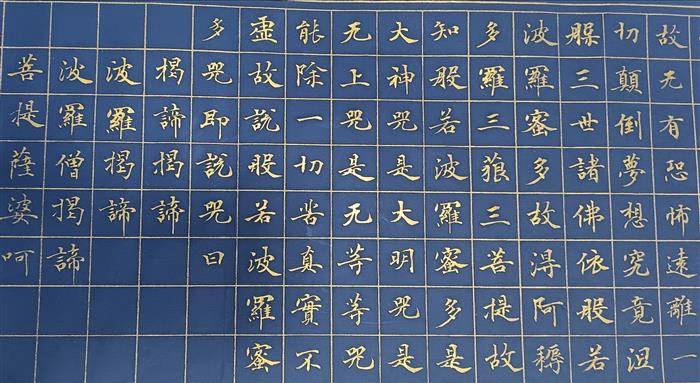 故无有恐怖遠離一
切顛倒夢想究竟涅
槃三世諸佛依般若
波羅蜜多故得阿耨
多羅三藐三菩提故
知般若波羅蜜多是
大神咒是大明咒是
无上咒是无等等咒
能除一切苦真實不
虛故說般若波羅蜜
多咒即說咒曰
揭諦揭諦
波羅揭諦
波羅僧揭諦
菩提薩婆呵